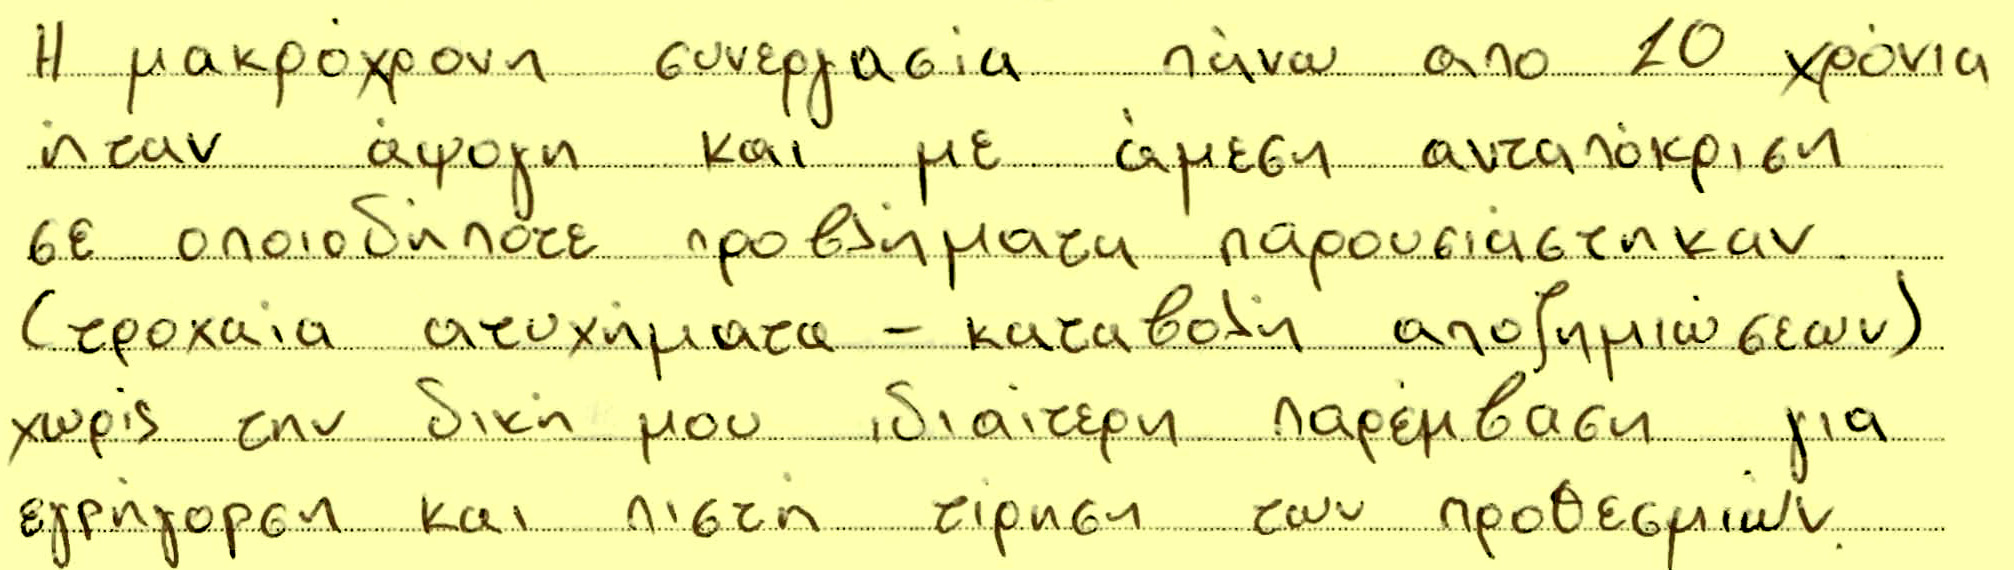 Η μακρόχρονη συνεργασία πάνω απο 10 χρόνια
ήταν άψογη και με άμεση ανταπόκριση
σε οποιοδήποτε προβλήματα παρουσιάστηκαν.
(τροχαία ατυχήματα - καταβολή αποζημιώσεων)
χωρίς την δική μου ιδιαίτερη παρέμβαση για
εγρήγορση και πιστή τίρηση των προθεσμιών.